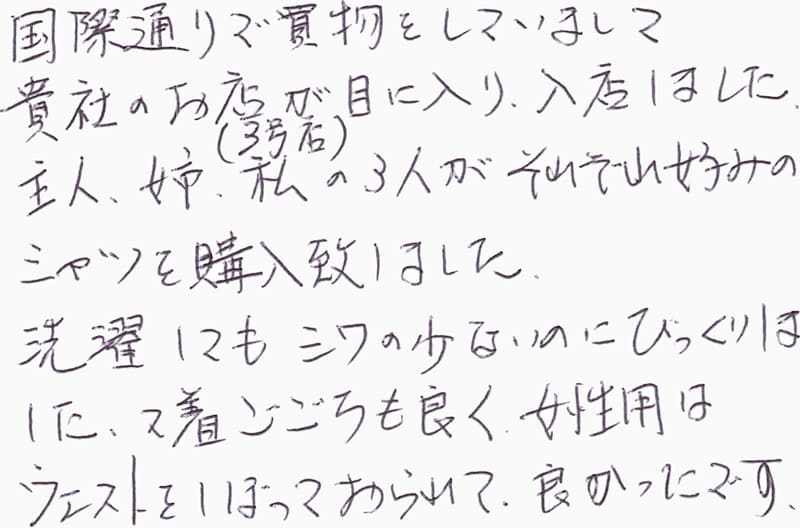 国際通りで買物をしていまして
貴社のお店が目に入り、入店しました。
(3号店)
主人、姉、私の3人がそれぞれ好みの
シャツを購入致しました。
洗濯してもシワの少ないのにびっくりしま
した、又着ごごちも良く、女性用は
ウエストをしぼっておられて、良かったです。